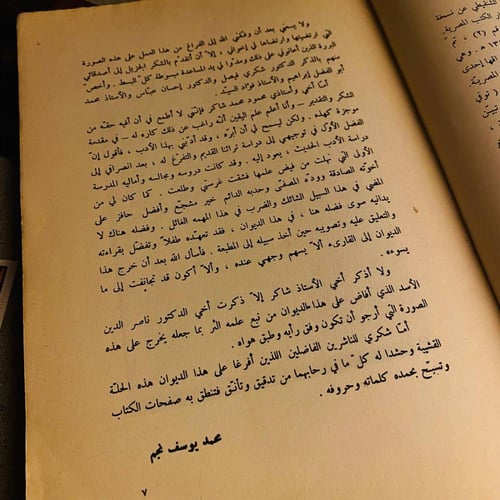 ولا يسعني بعد أن وفقني الله إلى الفراغ من هذا العمل على هذه الصورة
التي ارتضيتها وارتضاها لي إخواني ، إلا أن أتقدم بالشكر الجزيل إلى أصدقائي
البررة الذين أعانوني على ذلك ومدوا لي يد المساعدة مبسوطة كل البسط . وأخص
منهم بالذكر الدكتور شكري فيصل والدكتور إحسان عباس والأستاذ محمد
أبو الفضل إبراهيم والأستاذ فؤاد السيد .
أما أخي وأستاذي محمود محمد شاكر فإنني لا أطمع في أن أفيه حقه من
الشكر والتقدير – وأنا أعلم علم اليقين أنه راغب عن ذلك كاره له – في مقدمة
موجزة كهذه . ولكن ليسمح لي أن أبره ، وقد أدبني بهذا الأدب ، فأقول إن
الفضل الأول في توجيهي إلى دراسة تراثنا القديم والتفرغ له ، بعد انصرافي إلى
دراسة الأدب الحديث ، يعود إليه . وقد كانت دروسه ومجالسه وأماليه المدرسة
الأولى التي نهلت من فيض علمها فشقت غرستي وطلعت . كما كان لي من
أخوته الصادقة ووده المصفى وحدبه الدائم خير مشجع وأفضل حافز على
المضي في هذا السبيل الشائك والضرب في هذا المهمه الغائل . وفضله هناك لا
يدانيه سوى فضله هنا ، في هذا الديوان ، فقد تعهده طفلاً وتفضل بقراءته
والتعليق عليه وتصويبه حين أخذ سبيله إلى المطبعة . فأسأل الله بعد أن خرج هذا
الديوان إلى القارىء ألا يسهم وجهي عنده ، وألا أكون قد تجانفت إلى ما
يسوءه .
ولا أذكر أخي الأستاذ شاكر إلا ذكرت أخي الدكتور ناصر الدين
الأسد الذي أفاض على هذا الديوان من نبع علمه الثر بما جعله يخرج على هذه
الصورة التي أرجو أن تكون وفق رأيه وطبق هواه .
أما شكري للناشرين الفاضلين اللذين أفرغا على هذا الديوان هذه الحلة
القشيبة وحشدا له كل ما في رحابهما من تدقيق وتأنق فتنطق به صفحات الكتاب
وتسبح بحمده كلماته وحروفه .
محمد يوسف نجم
٧